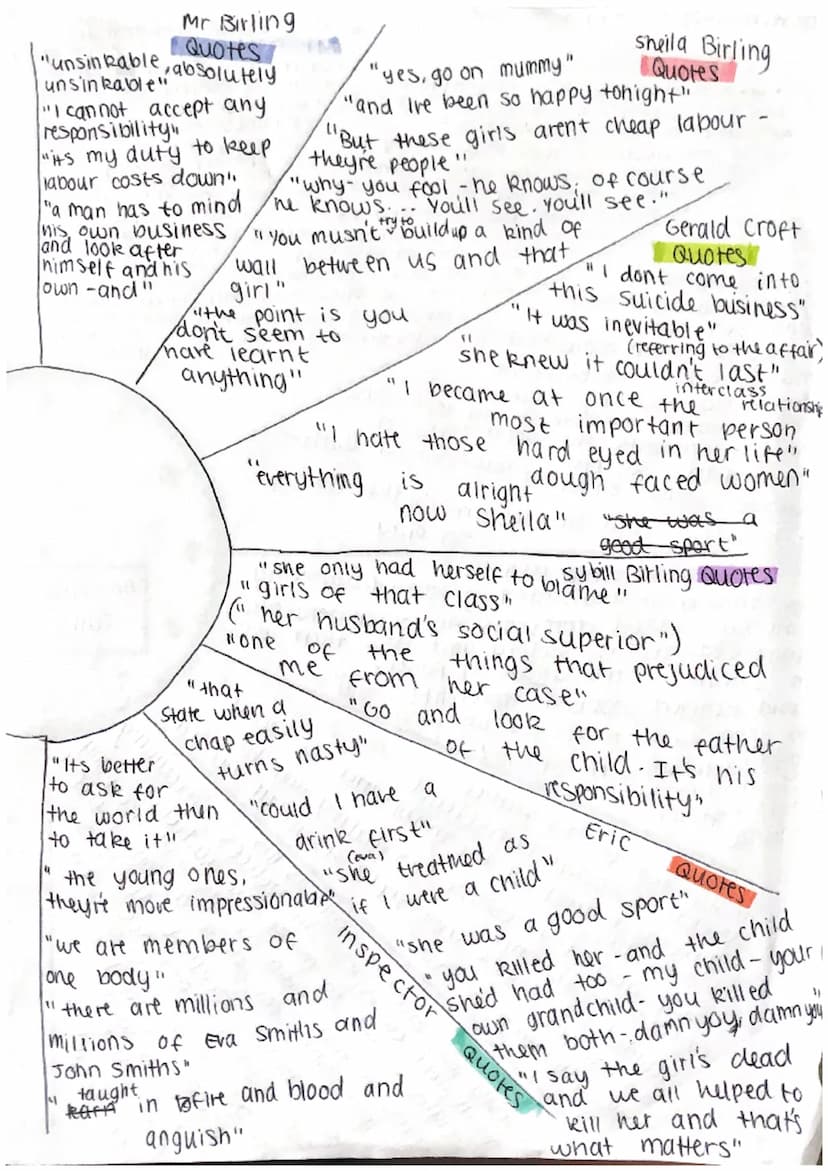 Mr Birling
Quotes
"unsinkable, absolutely
unsinkable"
"I cannot accept any
responsibility"
"its my duty to keep
labour costs down"
"a man has to mind
his own business
and look after
himself and his
own -and"
Sheila Birling
Quotes
"yes, go on mummy"
"and Ive been so happy tonight"
"But these girls arent cheap labour -
they're people"
"why- you fool - he knows, of course
he knows... You'll see. you'll see."
"You musn't try to build up a kind of
wall between us and that
girl"
"the point is you
don't seem to
have learnt
anything"
Gerald Croft
Quotes
"I dont come into
this suicide business"
"It was inevitable"
(referring to the affair)
"she knew it couldn't last"
interclass
relationship
"I became at once the
most important person
in her life"
"I hate those hard eyed
dough faced women"
"everything is alright
now Sheila"
"she was a
good sport"
sybill Birling Quotes
"she only had herself to blame"
"girls of that class"
(" her husband's social superior")
"one of the things that prejudiced
me from her case"
"Go and look for the father
of the child. It's his
responsibility"
Eric
Quotes
"that
state when a
chap easily
turns nasty"
"could I have a
drink first"
(eva)
"she treatmed as
if I were a child"
"she was a good sport"
"you killed her -and the child
she'd had too - my child - your
own grandchild- you killed
them both-.damn you, damn you"
"I say the girl's dead
and we all helped to
kill her and that's
what matters"
Inspector
Quotes
"Its better
to ask for
the world then
to take it"
"the young ones,
they're more impressionable"
"we are members of
one body"
"there are millions and
millions of Eva Smiths and
John Smiths"
taught
" in fire and blood and
anguish"